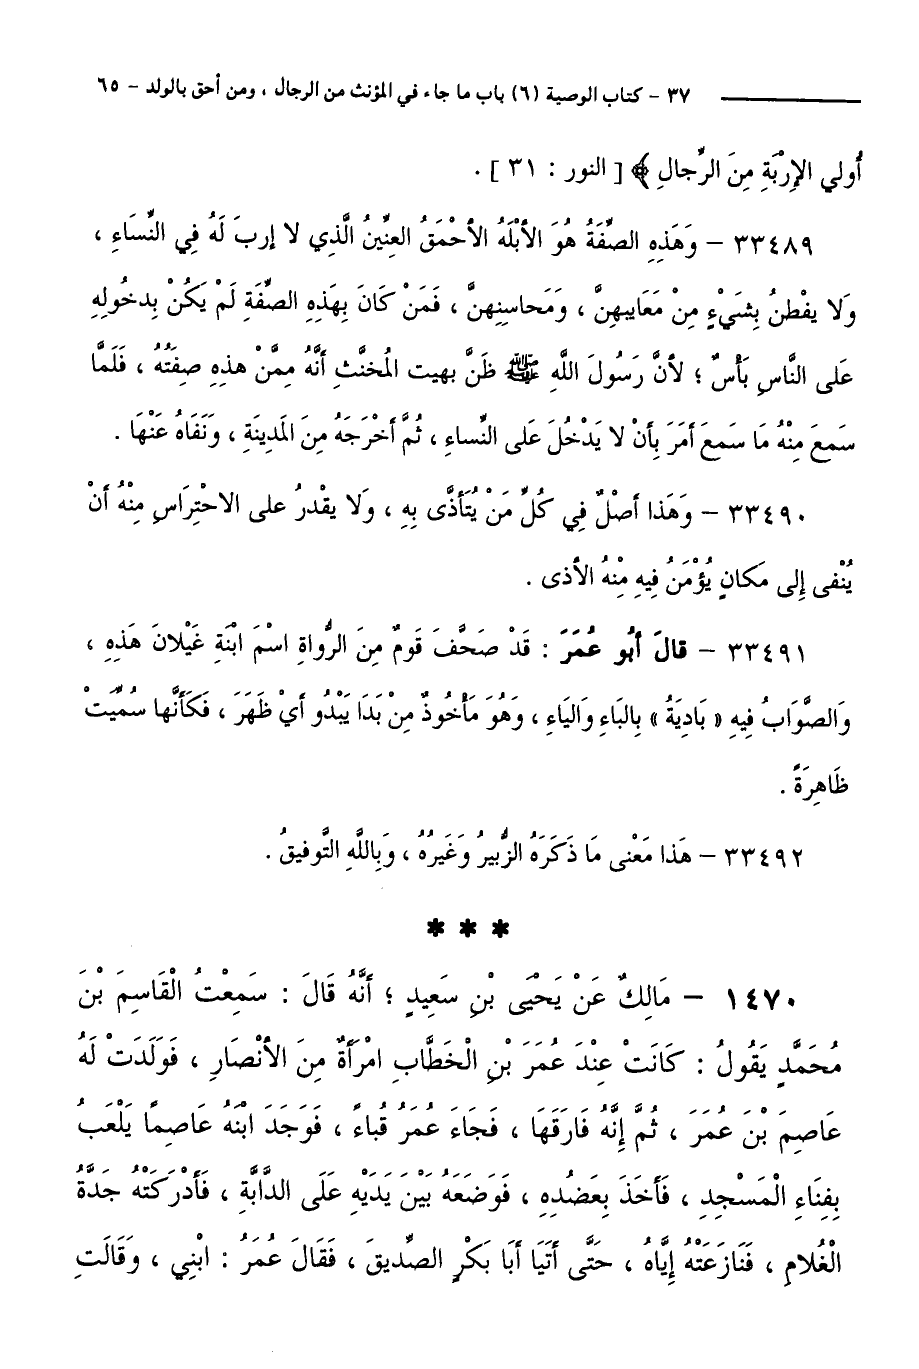 ٣٧ - كتاب الوصية (٦) باب ما جاء في المؤنث من الرجال ، ومن أحق بالولد - ٦٥
أُولي الإِرْبَةِ مِنَ الرِّجالِ ﴾ [ النور : ٣١ ] .
٣٣٤٨٩ - وَهَذِهِ الصِّفَةُ هُوَ الأبْلَهُ الأحْمَقُ العِنِّينُ الَّذِي لا إربَ لَهُ فِي النِّسَاءِ ،
وَلا يفْطنُ بِشَيْءٍ مِنْ مَعَايبهِنَّ ، وَمَحَاسِنِهِنَّ ، فَمَنْ كَانَ بِهَذِهِ الصِّفَةِ لَمْ يَكُنْ بِدخُولِهِ
عَلى النَّاسِ بَأْسٌ ؛ لأنَّ رَسُولَ اللَّهِ ﷺ ظَنَّ بهيت المُخنَّثِ أنَّهُ مِمَّنْ هذهِ صِفَتُهُ ، فَلَمَّا
سَمِعَ مِنْهُ مَا سَمِعَ أمَرَ بِأنْ لا يَدْخُلَ عَلى النِّساءِ ، ثُمَّ أخْرَجَهُ مِنَ المَدِينَةِ ، وَنَفَاهُ عَنْهَا .
٣٣٤٩٠ - وَهَذا أصْلٌ فِي كُلِّ مَنْ يُتَأذَّى بِهِ ، وَلا يقْدرُ على الاحْتِرَاسِ مِنْهُ أنْ
يُنْفى إلى مَكانٍ يُؤْمَنُ فِيهِ مِنْهُ الأذى .
٣٣٤٩١ - قالَ أبُو عُمَرَ : قَدْ صَحَّفَ قَومٌ مِنَ الرُّواةِ اسْمَ ابْنَةِ غَيْلانَ هَذِهِ ،
وَالصَّوَابُ فِيهِ « بَادِيَةُ » بِالبَاءِ وَاليَاءِ ، وَهُوَ مَأخُوذٌ مِنْ بَدَا يَبْدُو أيْ ظَهَرَ ، فَكَأنَّها سُمِّيَتْ
ظَاهِرَةً .
٣٣٤٩٢ - هَذا مَعْنى مَا ذَكَرَهُ الزُّبيرُ وَغَيرُهُ ، وَبِاللَّهِ التَّوفيقُ .
* * *
١٤٧٠ - مَالِكٌ عَنْ يَحْيَى بْنِ سَعِيدٍ ؛ أَنَّهُ قَالَ : سَمِعْتُ الْقَاسِمَ بْنَ
مُحَمَّدٍ يَقُولُ : كَانَتْ عِنْدَ عُمَرَ بْنِ الْخَطَّابِ امْرَأَةٌ مِنَ الأنْصَارِ ، فَوَلَدَتْ لَهُ
عَاصِمَ بْنَ عُمَرَ ، ثُمَّ إِنَّهُ فَارَقَهَا ، فَجَاءَ عُمَرُ قُباءً ، فَوَجَدَ ابْنَهُ عَاصِمًا يَلْعَبُ
بِفِنَاءِ الْمَسْجِدِ ، فَأخَذَ بِعَضُدِهِ ، فَوَضَعَهُ بَيْنَ يَدَيْهِ عَلَى الدَّابَّةِ ، فَأدْرَكَتْهُ جَدَّةُ
الْغُلامِ ، فَنَازَعَتْهُ إِيَّاهُ ، حَتَّى أتَيَا أبَا بَكْرٍ الصِّدِّيقَ ، فَقَالَ عُمَرُ : ابْنِي ، وَقَالَتِ